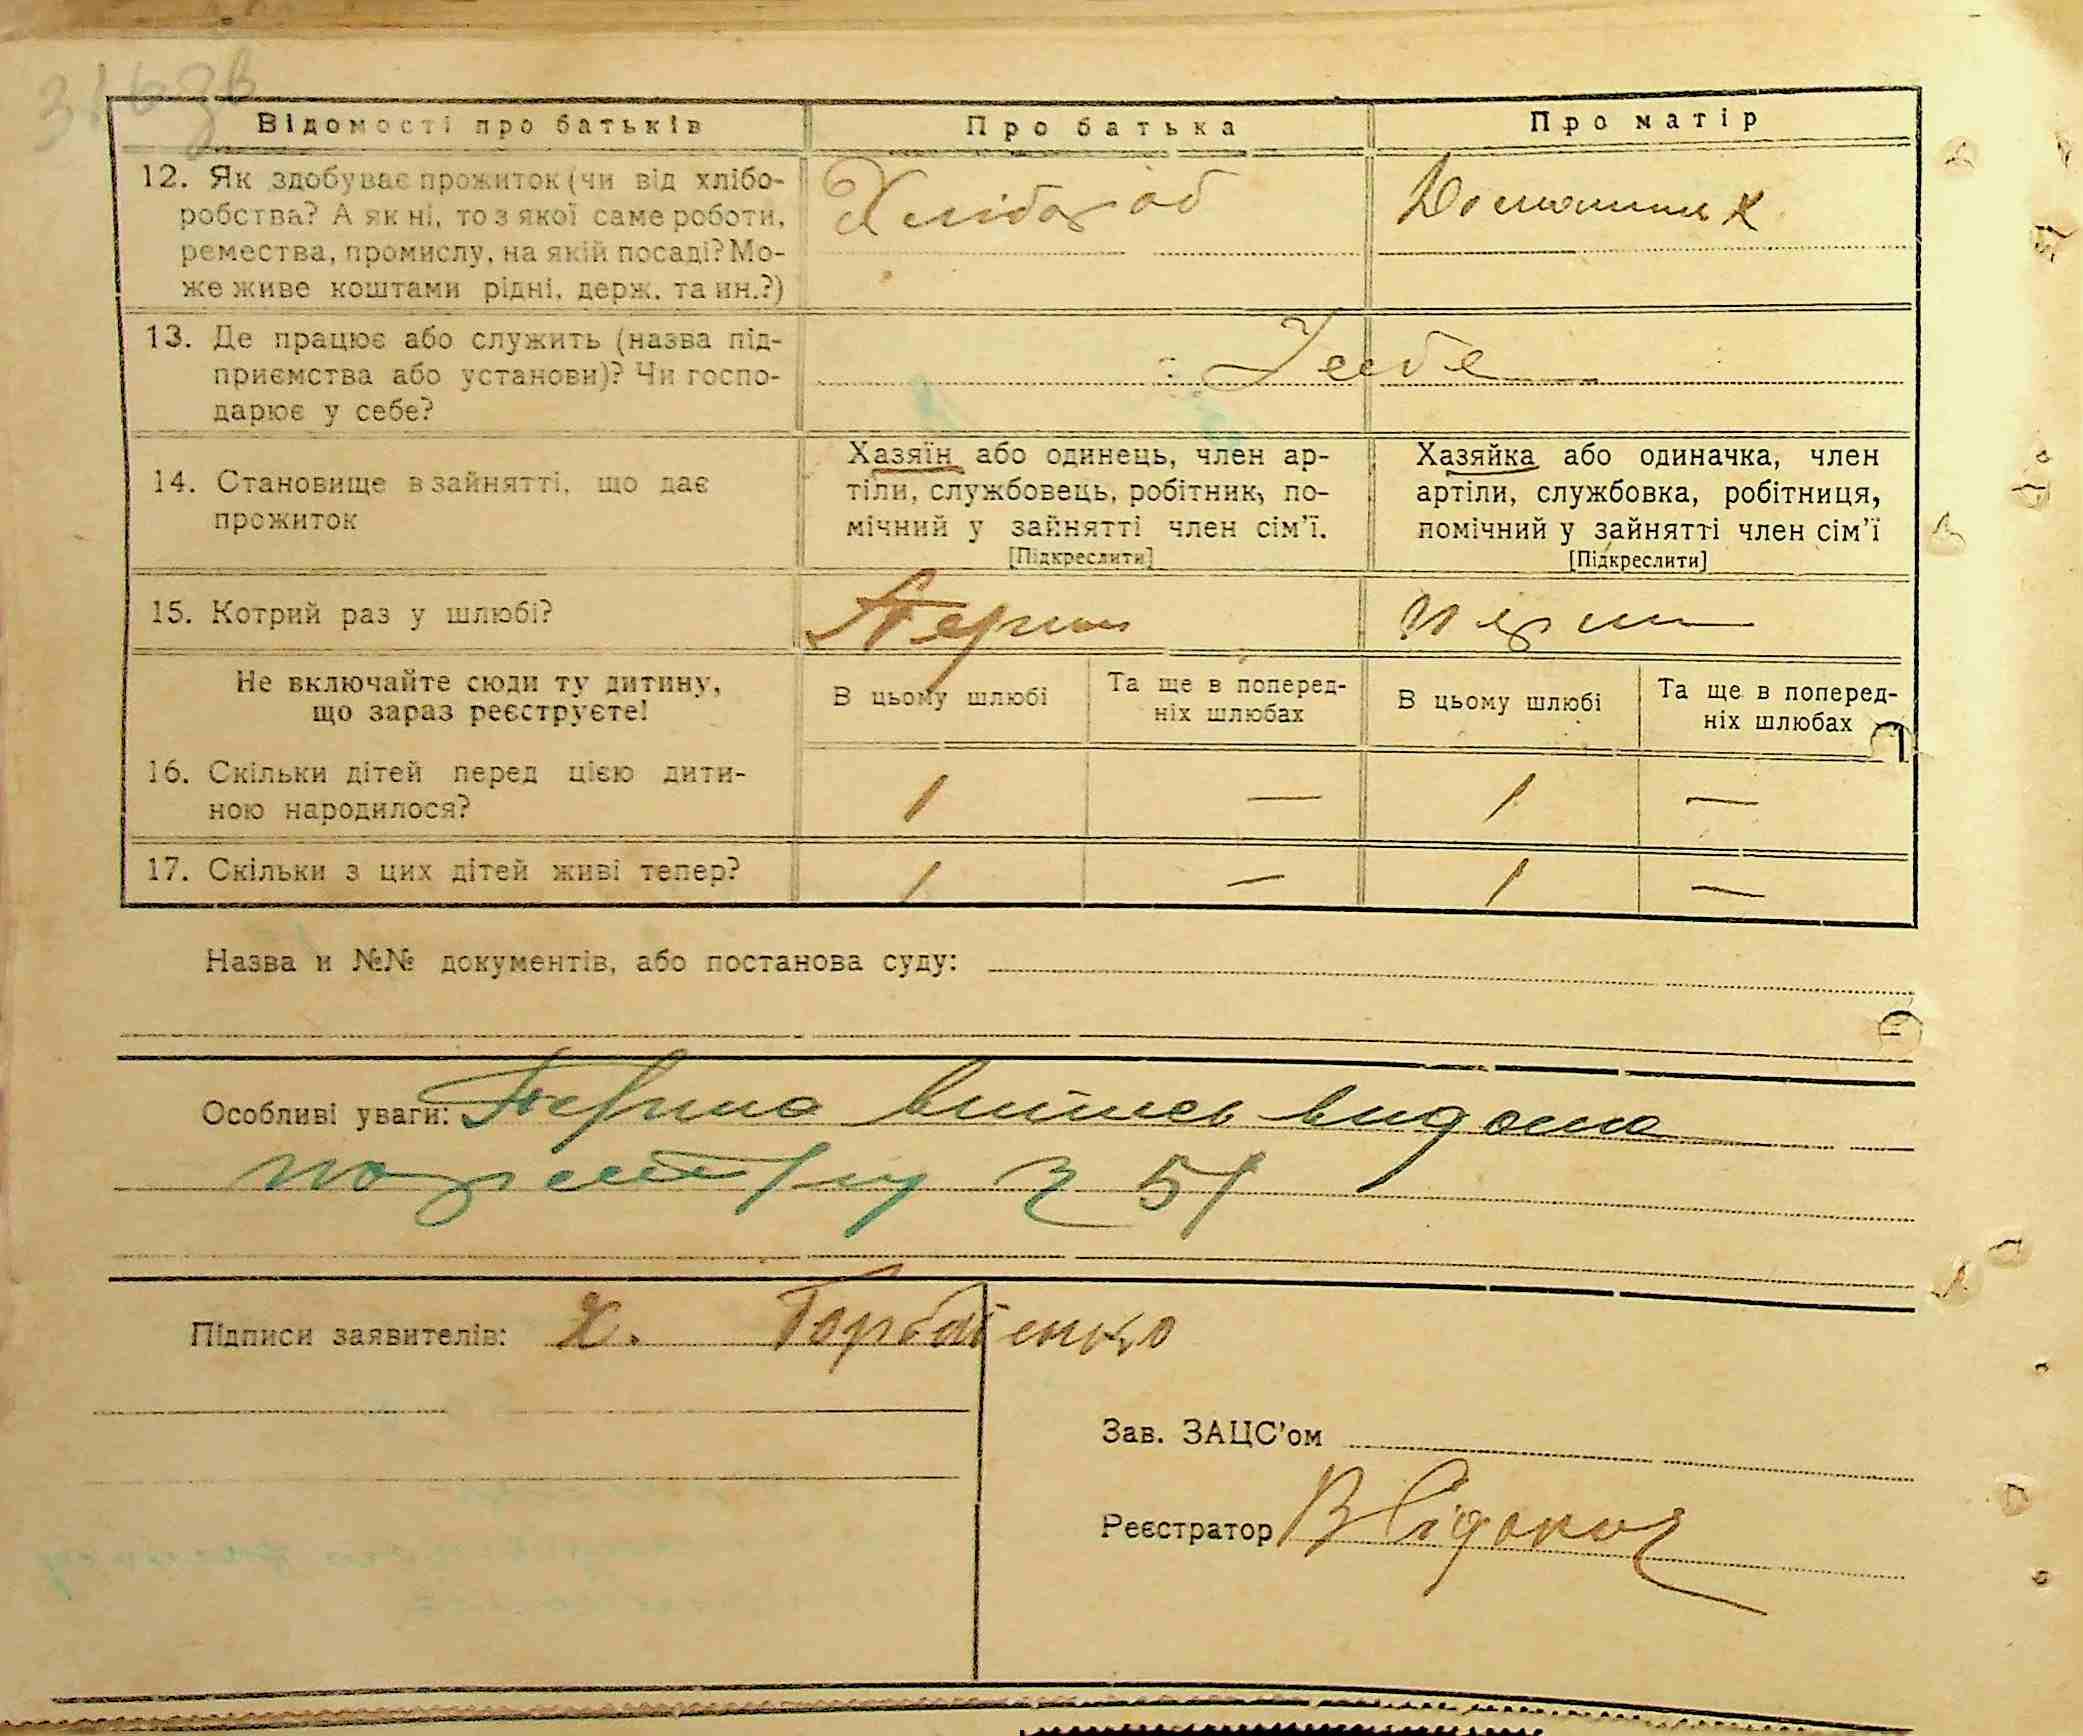 316зв
Відомості про батьків
Про батька
Про матір
12. Як здобуває прожиток (чи від хлібо-
робства? А як ні, то з якої саме роботи,
ремества, промислу, на якій посаді? Мо-
же живе коштами рідні, держ. та ин.?)
Хлібороб
13. Де працює або служить (назва під-
приємства або установи)? Чи госпо-
дарює у себе?
У себе
14. Становище в зайнятті, що дає
прожиток
Хазяїн або одинець, член ар-
тіли, службовець, робітник, по-
мічний у зайнятті член сім'ї.
[Підкреслити]
Хазяйка або одиначка, член
артіли, службовка, робітниця,
помічний у зайнятті член сім'ї
[Підкреслити]
15. Котрий раз у шлюбі?
Перши
перши
Не включайте сюди ту дитину,
що зараз реєструєте!
В цьому шлюбі
Та ще в поперед-
ніх шлюбах
В цьому шлюбі
Та ще в поперед-
ніх шлюбах
16. Скільки дітей перед цією дити-
ною народилося?
1 — 1 —
17. Скільки з цих дітей живі тепер?
1 — 1 —
Назва и №№ документів, або постанова суду:
Особливі уваги: Перша випись видана
51
Підписи заявителів: Х. Горбатенко
Зав. ЗАЦС'ом
Реєстратор